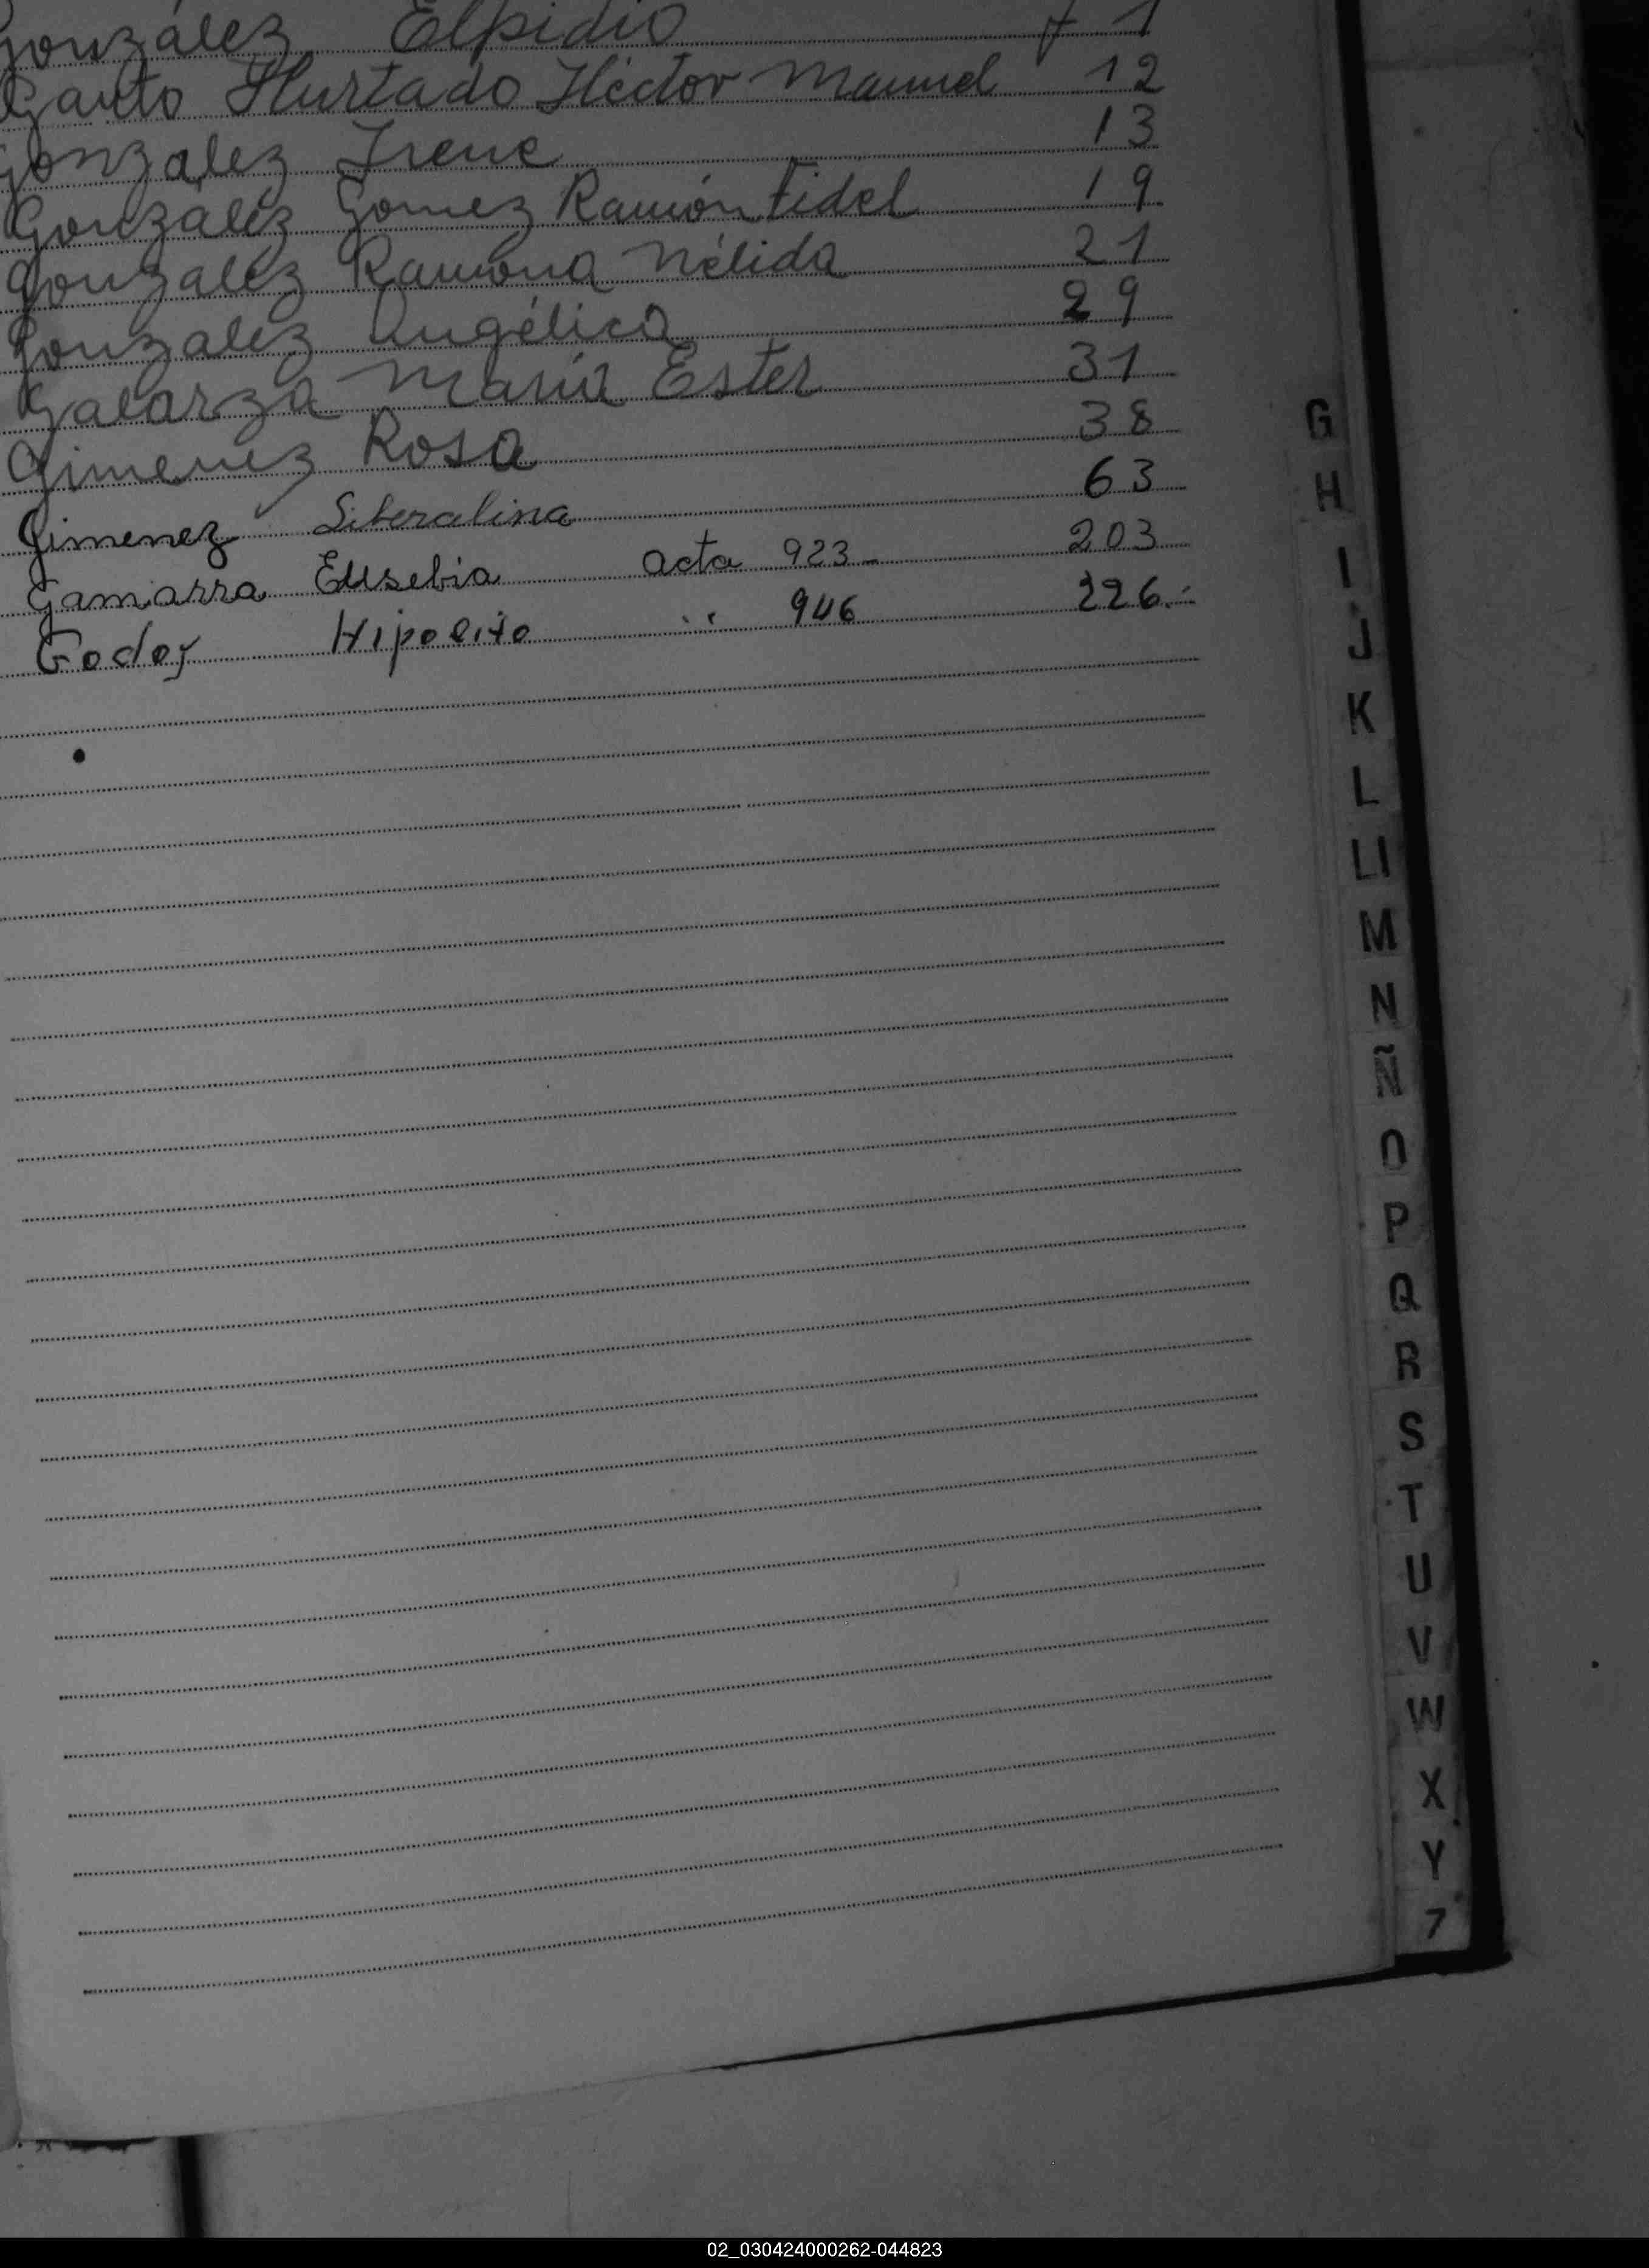 González Elpidio f 1
Hurtado Héctor Manuel 12
Gonzalez Irene 13
González Gomez Ramón Fidel 19
Gonzalez Ramona Nélida 21
Gonzalez Angélica 29
Galarza María Ester 31
Gimenez Rosa 38
Gimenez Liberalina 63
Gamarra Eusebia acta 923- 203
Godoy Hipolito " 946 226.-
G
H
I
J
K
L
Ll
M
N
Ñ
O
P
Q
R
S
T
U
V
W
X
Y
02_030424000262-044823